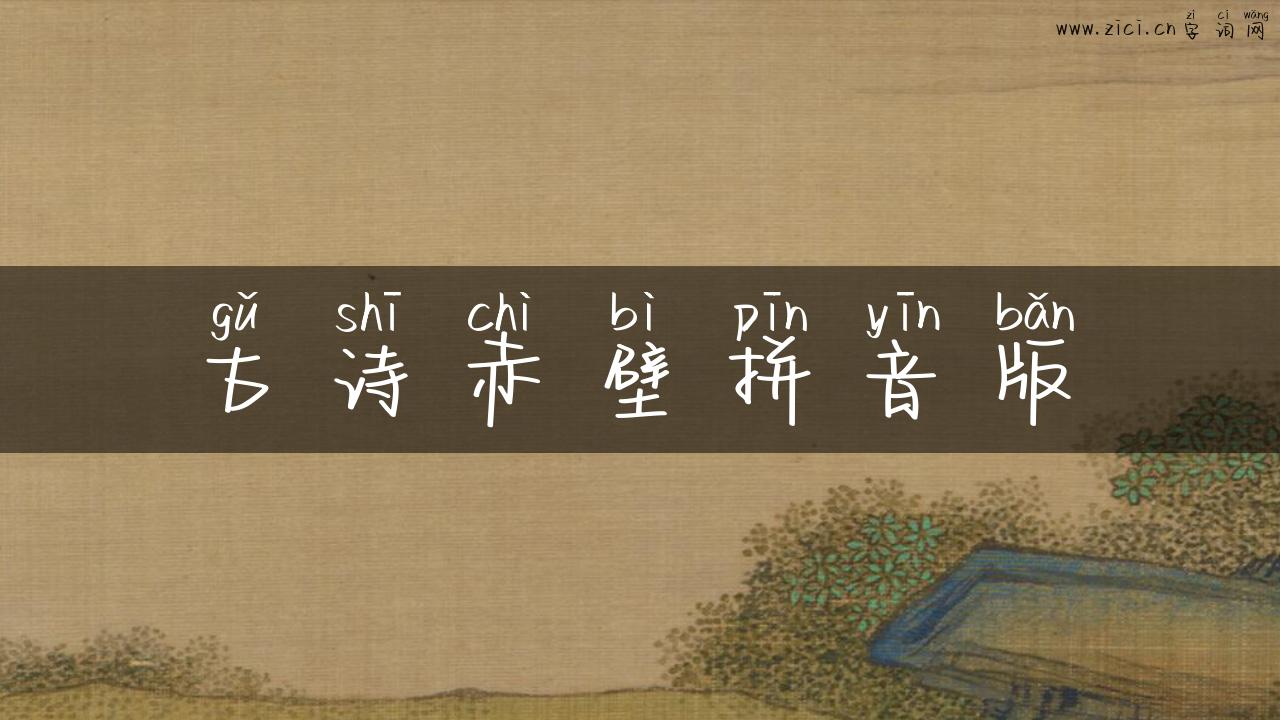 zì cí wǎng
www.zici.cn 字 词 网
gǔ shī chì bì pīn yīn bǎn
古 诗 赤 壁 拼 音 版